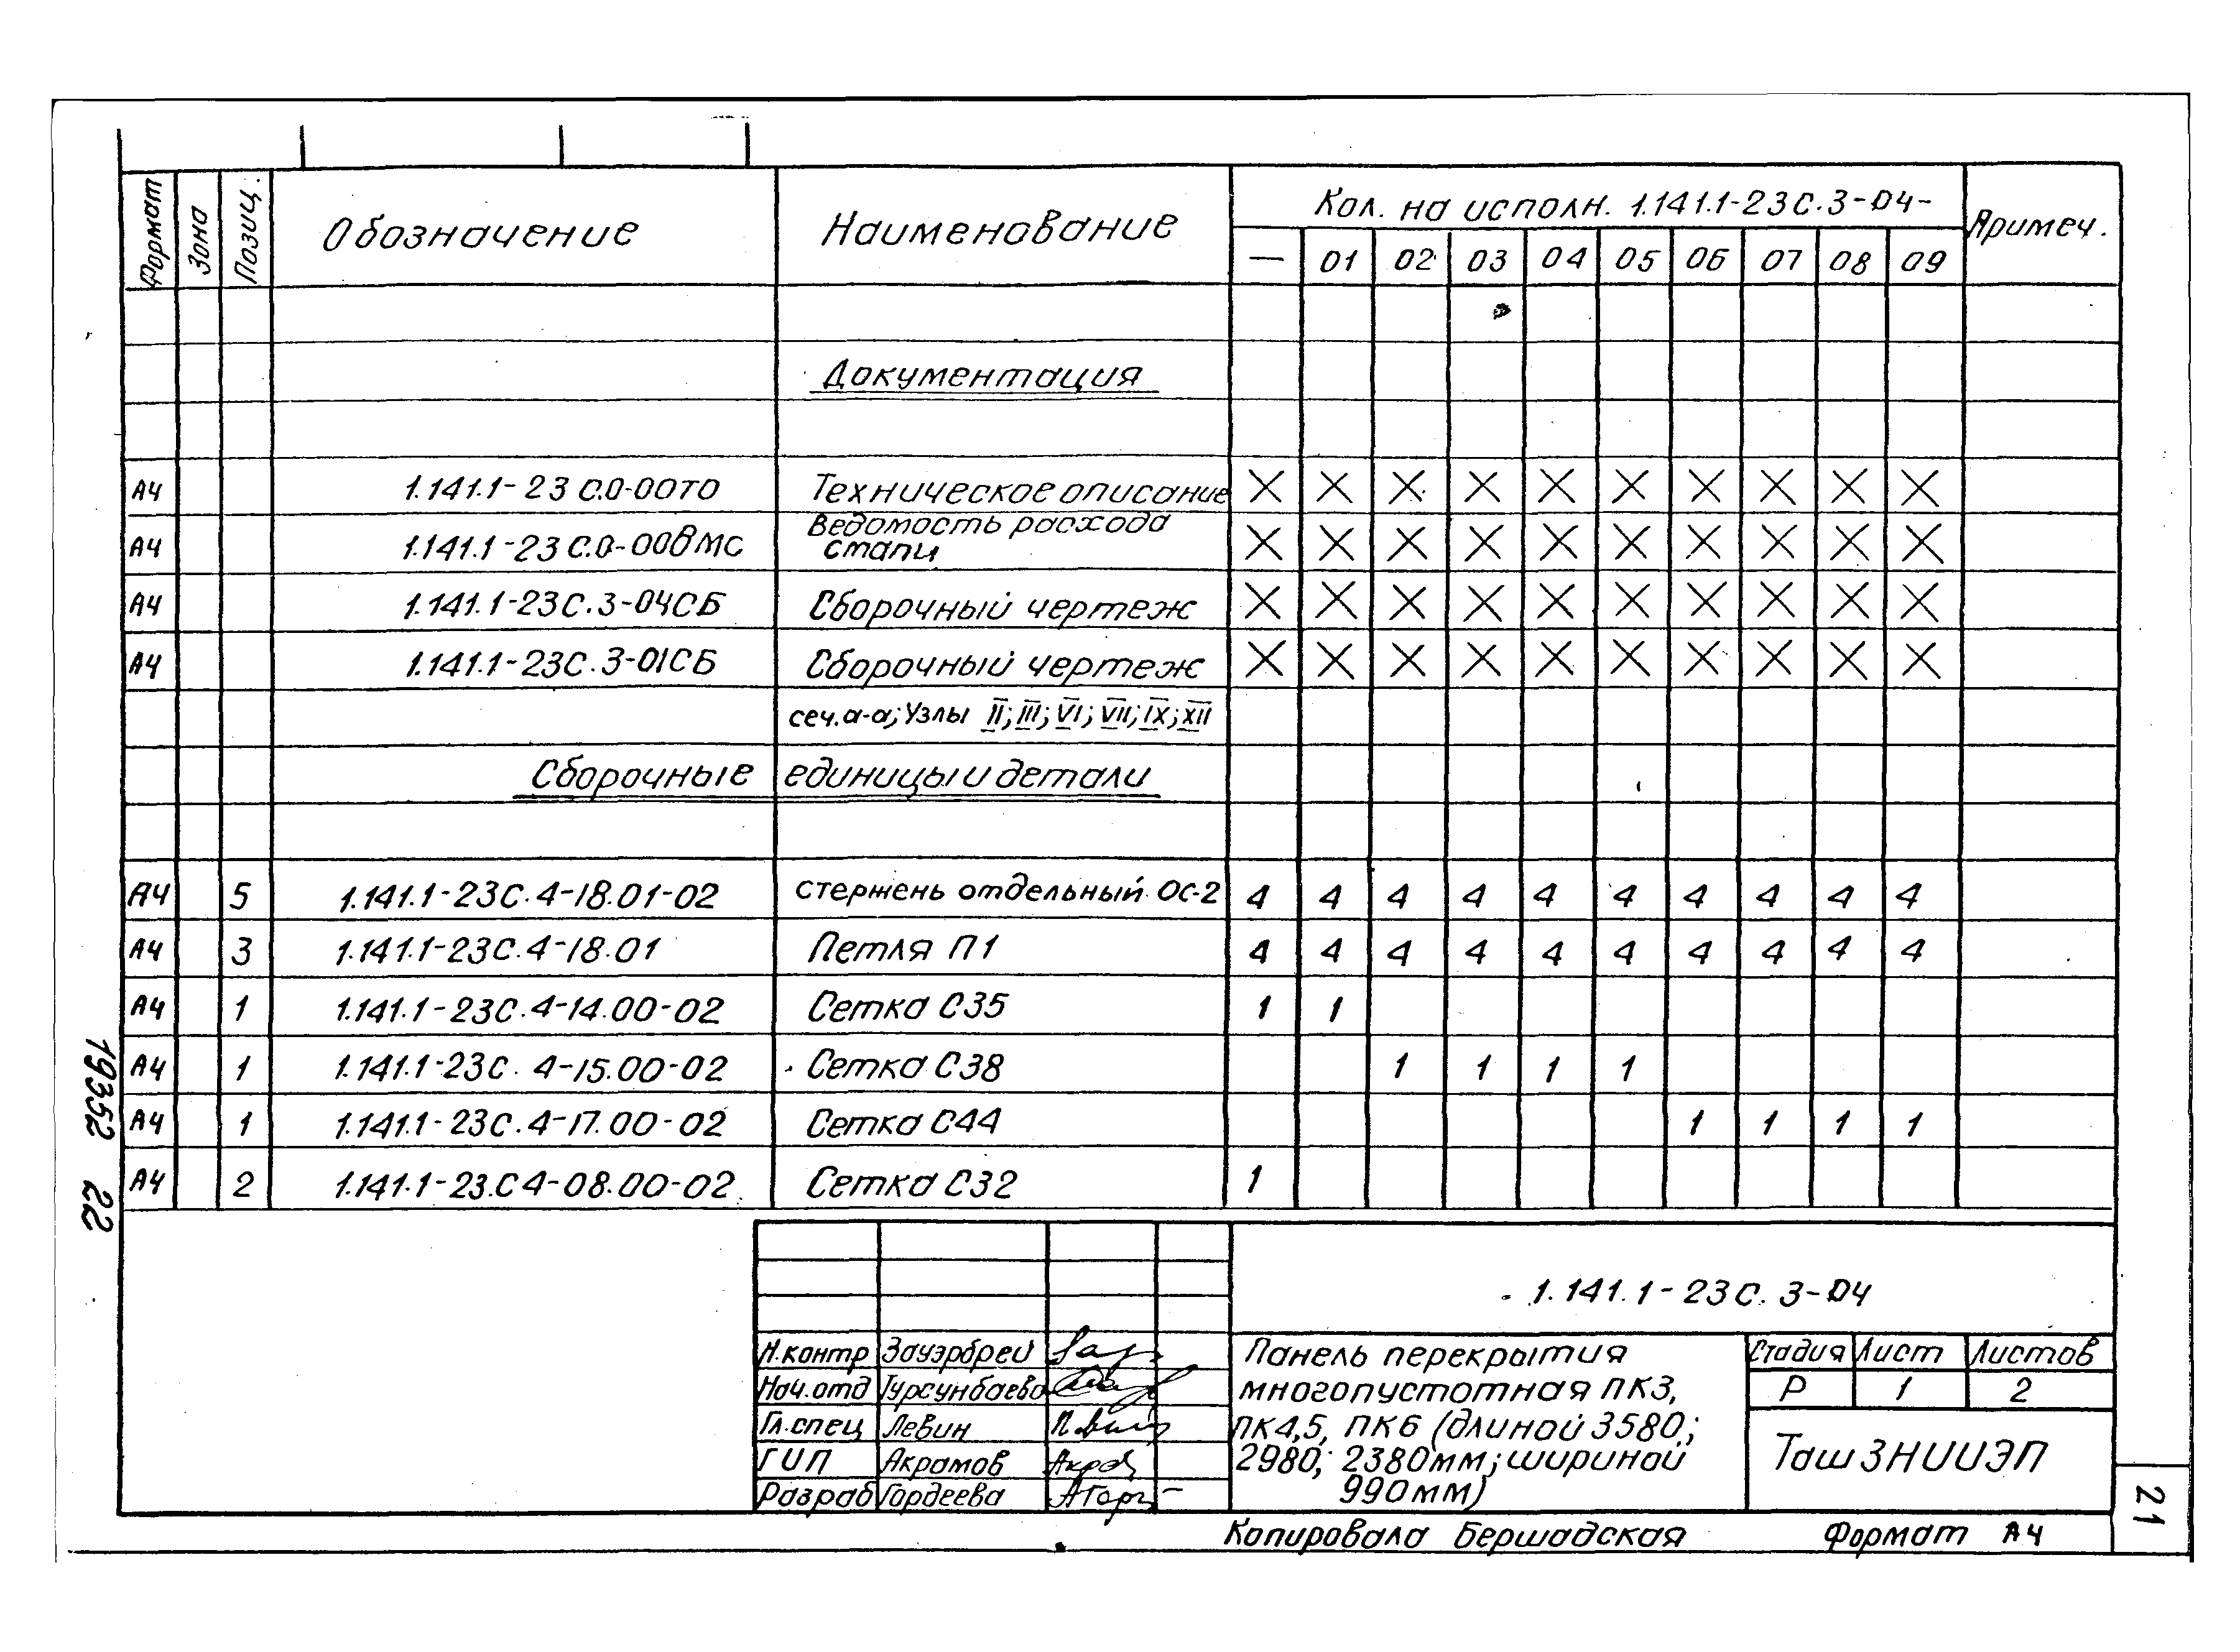 Формат Зона Позиц. Обозначение Наименование Кол. на исполн. 1.141.1-23С.3-04- Примеч.
— 01 02 03 04 05 06 07 08 09
Документация
А4 1.141.1-23 С.0-00ТО Техническое описание X X X X X X X X X X
А4 1.141.1-23 С.0-00ВМС Ведомость расхода стали X X X X X X X X X X
А4 1.141.1-23С.3-04СБ Сборочный чертеж X X X X X X X X X X
А4 1.141.1-23С.3-01СБ Сборочный чертеж X X X X X X X X X X
сеч. а-а; Узлы II; III; VI; VII; IX; XII
Сборочные единицы и детали
А4 5 1.141.1-23С.4-18.01-02 Стержень отдельный ОС-2 4 4 4 4 4 4 4 4 4 4
А4 3 1.141.1-23С.4-18.01 Петля П1 4 4 4 4 4 4 4 4 4 4
А4 1 1.141.1-23С.4-14.00-02 Сетка С35 1 1
А4 1 1.141.1-23С.4-15.00-02 Сетка С38 1 1 1 1
А4 1 1.141.1-23С.4-17.00-02 Сетка С44 1 1 1 1
А4 2 1.141.1-23.С4-08.00-02 Сетка С32 1
19352 22
1.141.1-23С.3-04
Н.контр Зауэрбрей
Нач.отд Турсунбаева
Гл.спец Левин
ГИП Акрамов
Разраб Гордеева
Панель перекрытия
многопустотная ПК3,
ПК4,5, ПК6 (длиной 3580;
2980; 2380мм; шириной
990мм)
Стадия Лист Листов
Р 1 2
ТашЗНИИЭП
21
Копировала Бершадская Формат А4